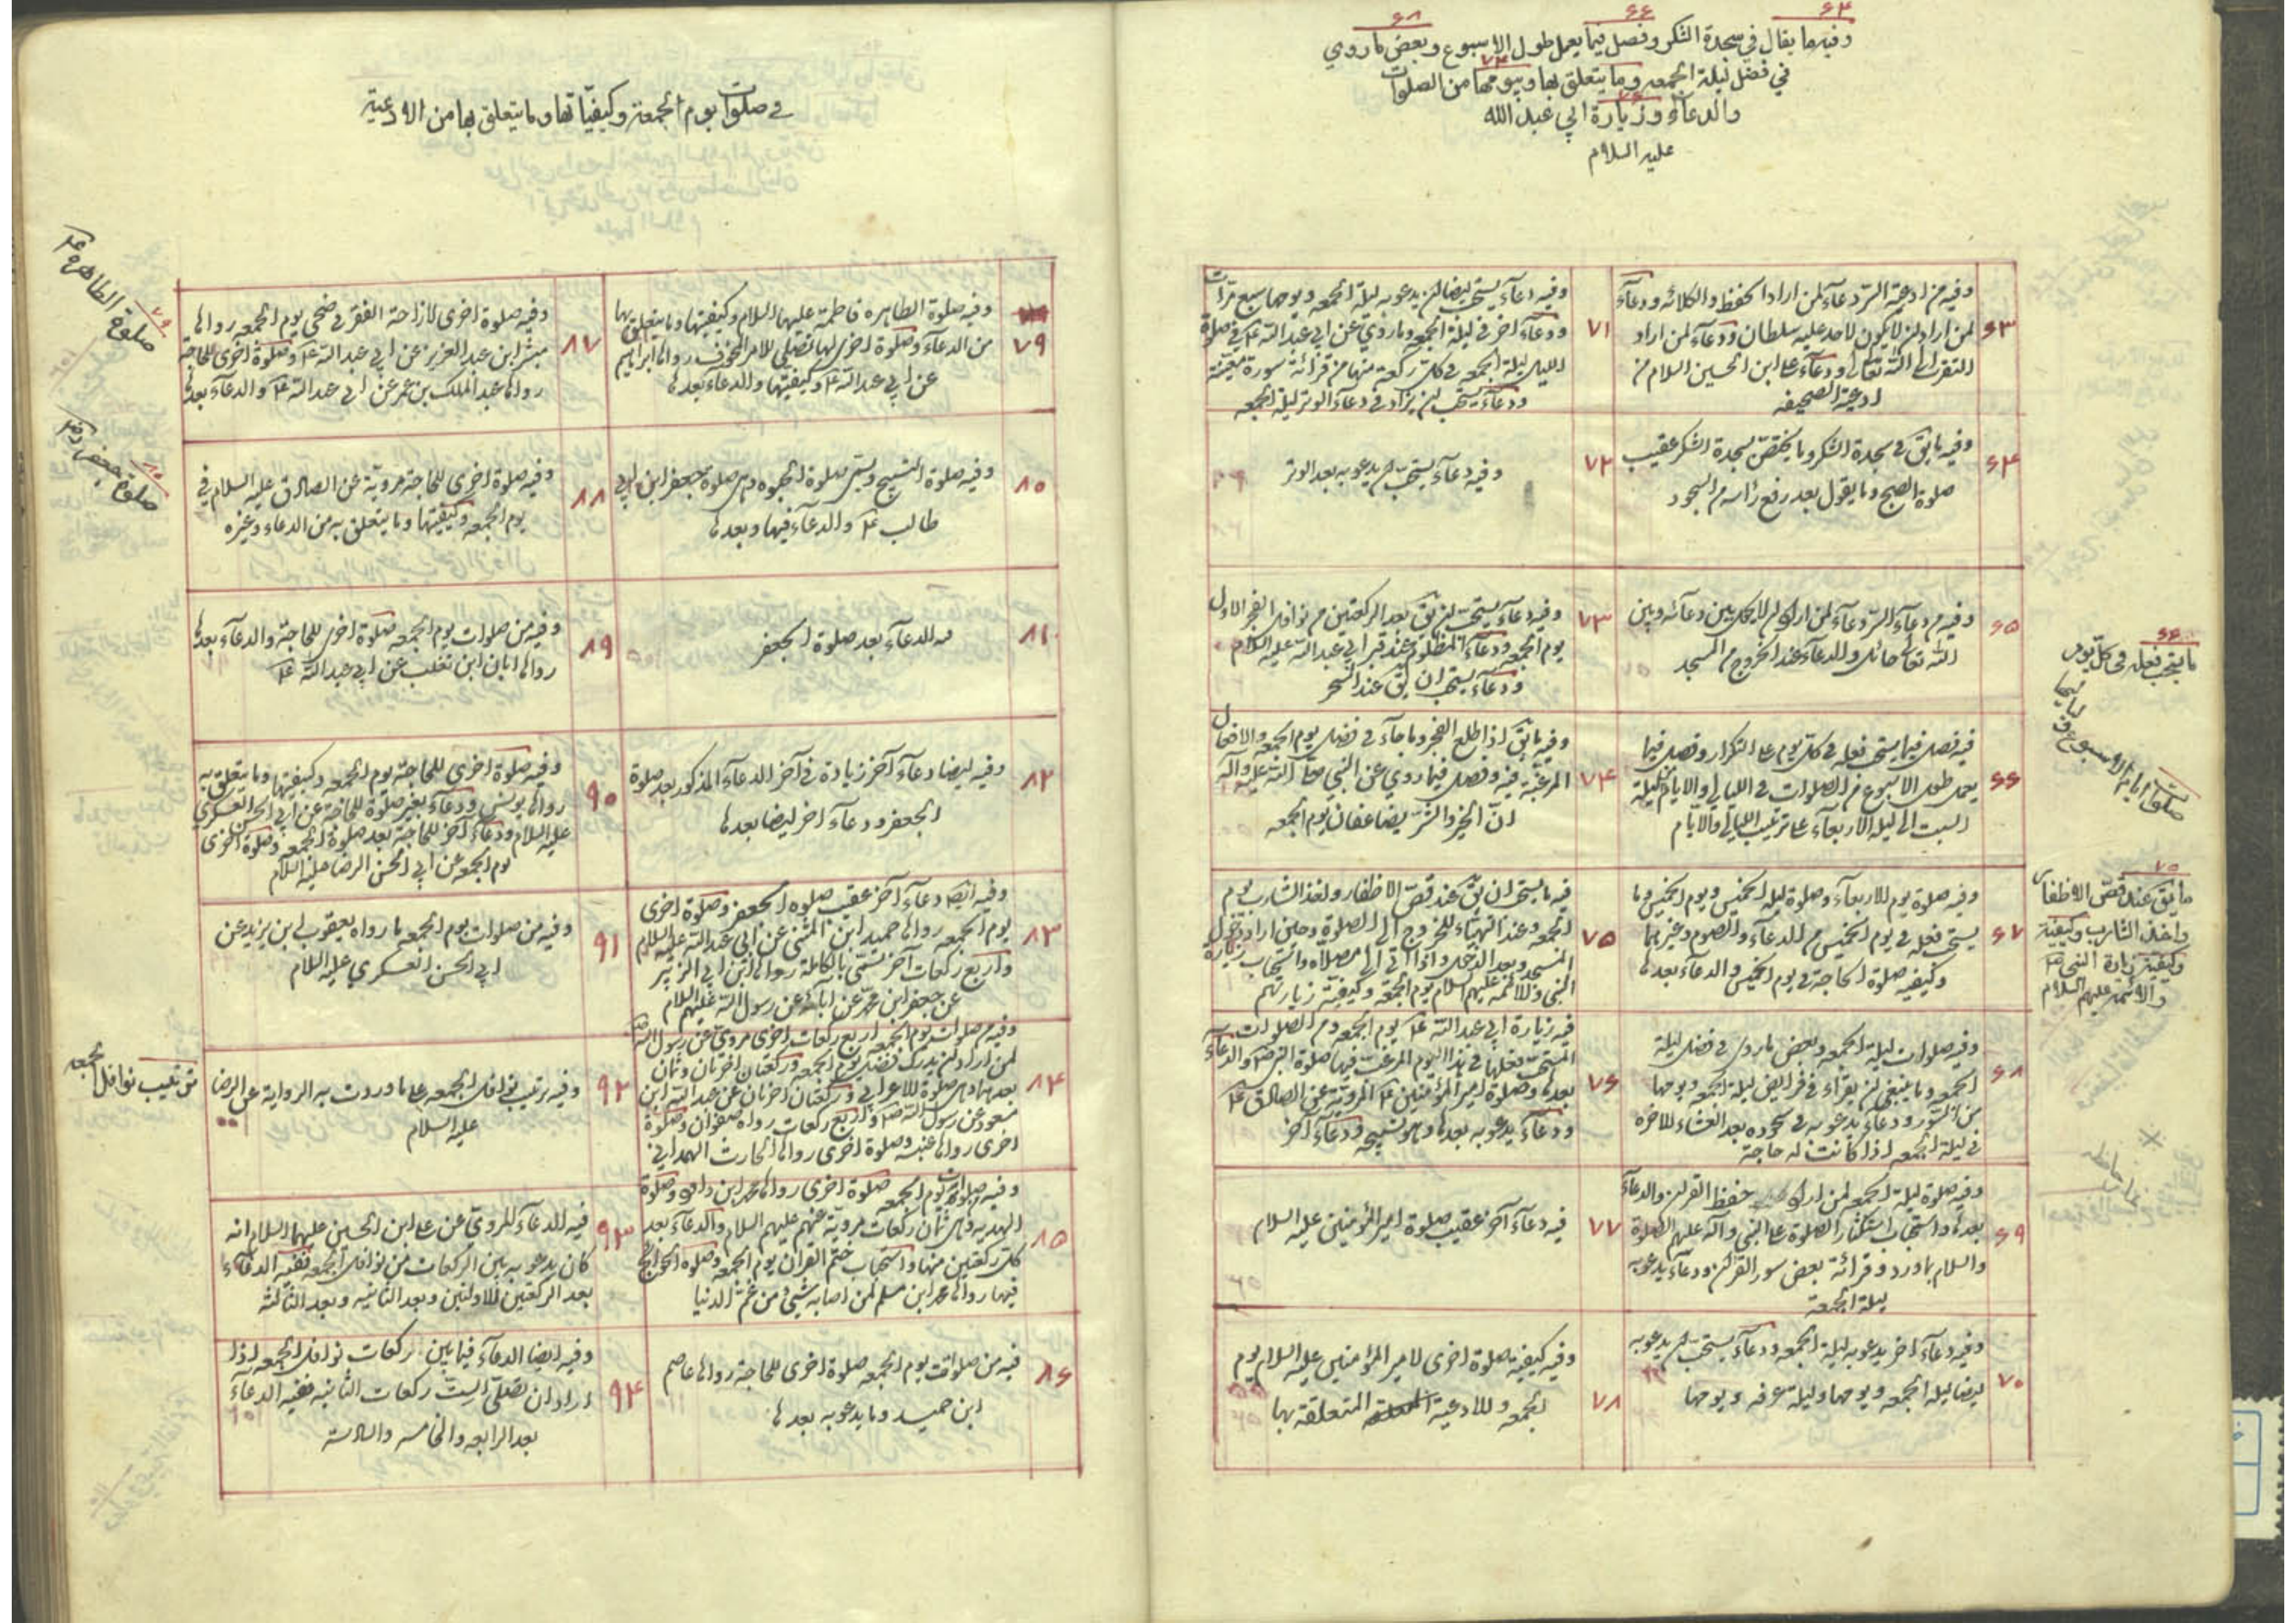 ۶۴ ۶۶ ۶۸
وفيه ما يقال في سجدة الشكر وفصل فيما يعمل طول الاسبوع وبعض ما روي
۷۳
في فضل ليلة الجمعه وما يتعلق بها ويومها من الصلوات
۷۶
والدعاء وزيارة ابي عبد الله
عليه السلام
۶۳
وفيه من ادعية السر دعاء لمن اراد الحفظ والكلائه ودعاء
لمن اراد ان لا يكون لاحد عليه سلطان ودعاء لمن اراد
التقرب الى الله تعالى ودعاء على ابن الحسين السلام من
ادعية الصحيفه
۶۴
وفيه ما يق في سجدة الشكر وما يختص بسجدة الشكر عقيب
صلوة الصبح وما يقول بعد رفع رأسه من السجود
۶۵
وفيه من دعاء السر دعاء لمن اراد ان لا يحال بين دعائه وبين
الله تعالى حائل والدعاء عند الخروج من المسجد
۶۶
فيه فصل فيما يستحب فعله في كل يوم على التكرار وفصل فيما
يعمل طول الاسبوع من الصلوات في الليالي والايام من ليلة
السبت الى ليلة الاربعاء على ترتيب الليالي والايام
۶۷
وفيه صلوة يوم الاربعاء وصلوة ليلة الخميس ويوم الخميس وما
يستحب فعله في يوم الخميس من الدعاء والصوم وغيرهما
وكيفيه صلوة الحاجة في يوم الخميس والدعاء بعدها
۶۸
وفيه صلوات ليلة الجمعه وبعض ما روى في فضل ليلة
الجمعه وما ينبغي ان يقراء في فرايض ليلة الجمعه ويومها
من السور ودعاء يدعو به في سجوده بعد العشاء للاخره
في ليلة الجمعه اذا كانت له حاجة
۶۹
وفيه صلوة ليلة الجمعه لمن اراد حفظ القران والدعاء
بعدها واستحباب استكثار الصلوة على النبي وآله عليهم الصلوة
والسلام بما ورد وقرائة بعض سور القران ودعاء يدعو به
ليلة الجمعة
۷۰
وفيه دعاء آخر يدعو به ليلة الجمعه ودعاء يستحب ان يدعو به
ايضا ليلة الجمعه ويومها وليلة عرفه ويومها
۷۱
وفيه دعاء يستحب ايضا ان يدعو به ليلة الجمعه ويومها سبع مرات
ودعاء آخر في ليلة الجمعه وما روي عن ابي عبد الله ع في صلوة
الليل ليلة الجمعه في كل ركعة منها من قرائة سورة معينة
ودعاء يستحب ان يزاد في دعاء الوتر ليلة الجمعه
۷۲
وفيه دعاء يستحب ان يدعو به بعد الوتر
۷۳
وفيه دعاء يستحب ان يق بعد الركعتين من نوافل الفجر الاول
يوم الجمعه ودعاء المظلوم عند قبر ابي عبد الله عليه السلام
ودعاء يستحب ان يق عند السحر
۷۴
وفيه ما يق اذا طلع الفجر وما جاء في فضل يوم الجمعه والافعال
المرغبة فيه وفصل فيما روي عن النبي صلى الله عليه وآله
ان الخير والشر يضاعفان يوم الجمعه
۷۵
فيه ما يستحب ان يق عند قص الاظفار واخذ الشارب يوم
الجمعه وعند التهياء للخروج الى الصلوة وحين اراد دخول
المسجد وبعد الدخول واذا اتى الى مصلاه واستحباب زيارة
النبي والائمة عليهم السلام يوم الجمعه وكيفية زيارتهم
۷۶
فيه زيارة ابي عبد الله ع يوم الجمعه ومن الصلوات
المستحب فعلها في هذا اليوم المرغب فيها صلوة النبي ص والدعاء
بعدها وصلوة امير المؤمنين ع المروية عن الصادق ع
ودعاء يدعو به بعدها وهو تسبيحه ودعاء آخر
۷۷
فيه دعاء آخر عقيب صلوة امير المؤمنين عليه السلام
۷۸
وفيه كيفيه صلوة اخرى لامير المؤمنين عليه السلام يوم
الجمعه والادعية المتعلقة بها
۶۶
ما يستحب فعله في كل يوم
صلوات ايام الاسبوع
۷۵
ما يق عند قص الاظفار
واخذ الشارب وكيفية
وكيفية زيارة النبي ص
والائمة عليهم السلام
في صلوات يوم الجمعة وكيفياتها وما يتعلق بها من الادعية
۷۹
وفيه صلوة الطاهره فاطمة عليها السلام وكيفيتها وما يتعلق بها
من الدعاء وصلوة اخرى لها تصلى للامر المخوف رواها ابراهيم
عن ابي عبد الله ع وكيفيتها والدعاء بعدها
۸۰
وفيه صلوة التسبيح وتسمى صلوة الحبوه وهى صلوة جعفر ابن ابي
طالب ع والدعاء فيها وبعدها
۸۱
فيه الدعاء بعد صلوة الجعفر
۸۲
وفيه ايضا دعاء آخر زيادة في آخر الدعاء المذكور بعد صلوة
الجعفر ودعاء آخر ايضا بعدها
۸۳
وفيه ايضا دعاء آخر عقيب صلوه الجعفر وصلوة اخرى
يوم الجمعه رواها حميد ابن المثنى عن ابي عبد الله عليه السلام
واربع ركعات آخر تسمى بالكاملة رواها ابن ابي الزبير
عن جعفر ابن محمد عن آبائه عن رسول الله عليهم السلام
۸۴
وفيه من صلوات يوم الجمعه اربع ركعات اخرى مروى عن رسول الله ص
لمن اراد ان يدرك فضل يوم الجمعه وركعتان اخرتان وثمان
بعدهما وهى صلوة الاعرابي وركعتان اخرتان عن عبد الله ابن
مسعود عن رسول الله ص واربع ركعات رواه صفوان وصلوة
اخرى رواها عنبسه وصلوة اخرى رواها الحارث الهمداني
۸۵
وفيه من صلوات يوم الجمعه صلوة اخرى رواها محمد ابن داود وصلوة
الهديه وهى ثمان ركعات مروية عنهم عليهم السلام والدعاء بعد
كل ركعتين منها واستحباب ختم القران يوم الجمعه وصلوة الحوائج
فيها رواها محمد ابن مسلم لمن اصابه شيئ من غم الدنيا
۸۶
فيه من صلوات يوم الجمعه صلوة اخرى للحاجة رواها عاصم
ابن حميد وما يدعو به بعدها
۸۷
وفيه صلوة اخرى لازاحة الفقر في ضحى يوم الجمعه رواها
مبشر ابن عبد العزيز عن ابي عبد الله ع وصلوة اخرى للحاجة
رواها عبد الملك بن عمر عن ابي عبد الله ع والدعاء بعدها
۸۸
وفيه صلوة اخرى للحاجة مروية عن الصادق عليه السلام في
يوم الجمعه وكيفيتها وما يتعلق به من الدعاء وغيره
۸۹
وفيه من صلوات يوم الجمعه صلوة اخرى للحاجة والدعاء بعدها
رواها ابان ابن تغلب عن ابي عبد الله ع
۹۰
وفيه صلوة اخرى للحاجة يوم الجمعه وكيفيتها وما يتعلق به
رواها يونس ودعاء بغير صلوة للحاجة عن ابي الحسن العسكري
عليه السلام ودعاء آخر للحاجة بعد صلوة الجمعه وصلوة اخرى
يوم الجمعه عن ابي الحسن الرضا عليه السلام
۹۱
وفيه من صلوات يوم الجمعه ما رواه يعقوب ابن يزيد عن
ابي الحسن العسكري عليه السلام
۹۲
وفيه ترتيب نوافل الجمعه على ما وردت به الرواية عن الرضا
عليه السلام
۹۳
فيه الدعاء المروى عن على ابن الحسين عليهما السلام انه
كان يدعو به بين الركعات من نوافل الجمعه ففيه الدعاء
بعد الركعتين الاولتين وبعد الثانيه وبعد الثالثه
۹۴
وفيه ايضا الدعاء فيما بين ركعات نوافل الجمعه اذا
اراد ان تصلى الست ركعات الثانيه ففيه الدعاء
بعد الرابعه والخامسه والسادسة
۷۹
صلوة الطاهرة ع
۸۰
صلوة جعفر ع
ترتيب نوافل الجمعه